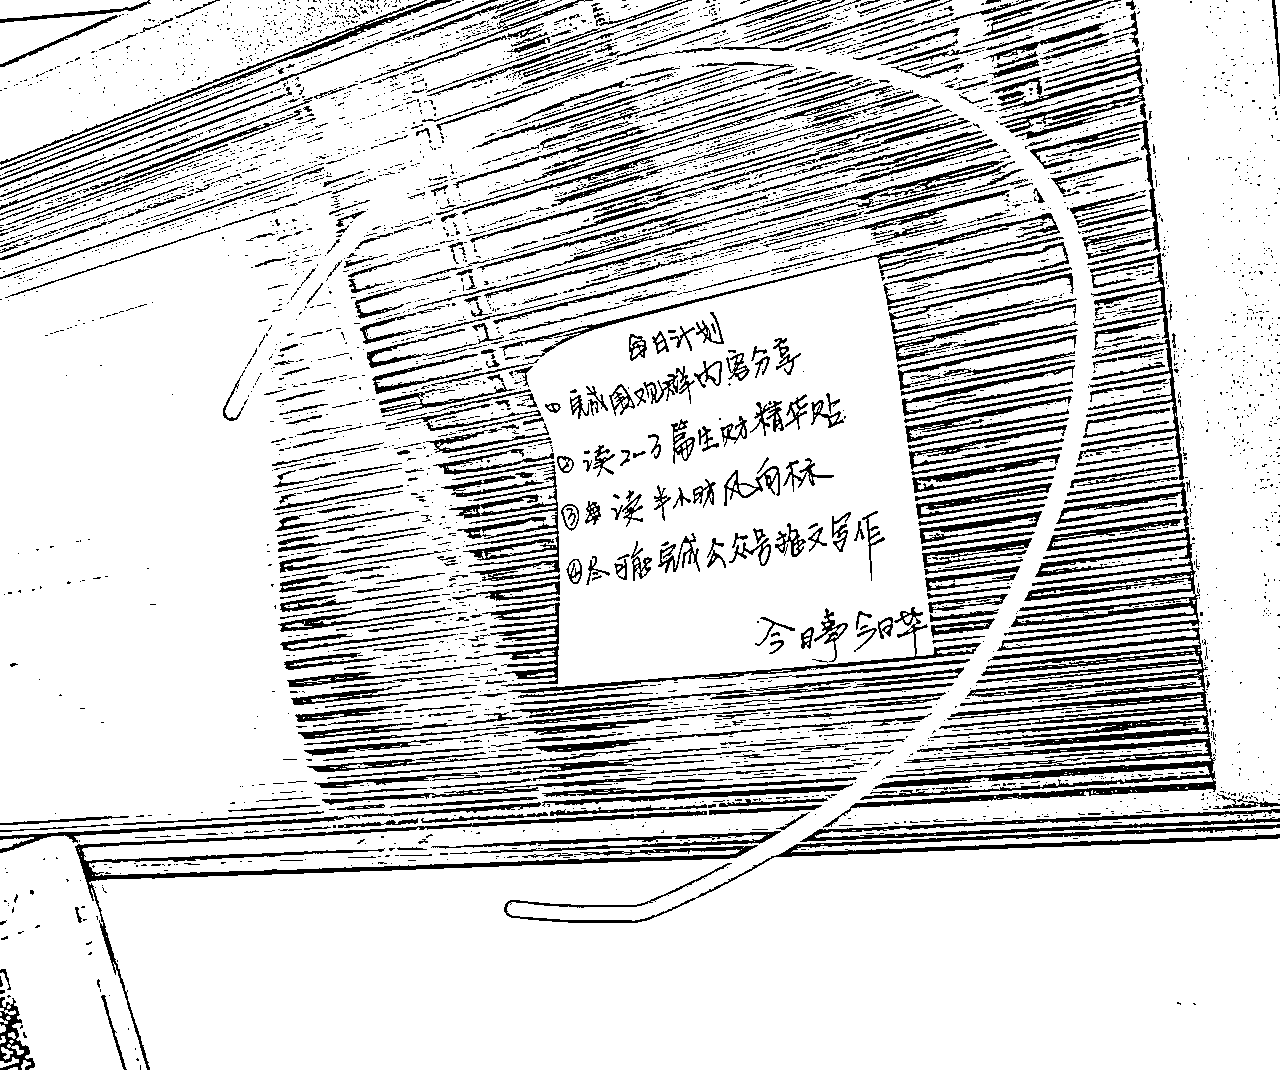 每日计划
① 完成围观群内容分享
② 读2-3篇生财精华贴
③ 每读半小时风向标
④ 尽可能完成公众号推文写作
今日事今日毕